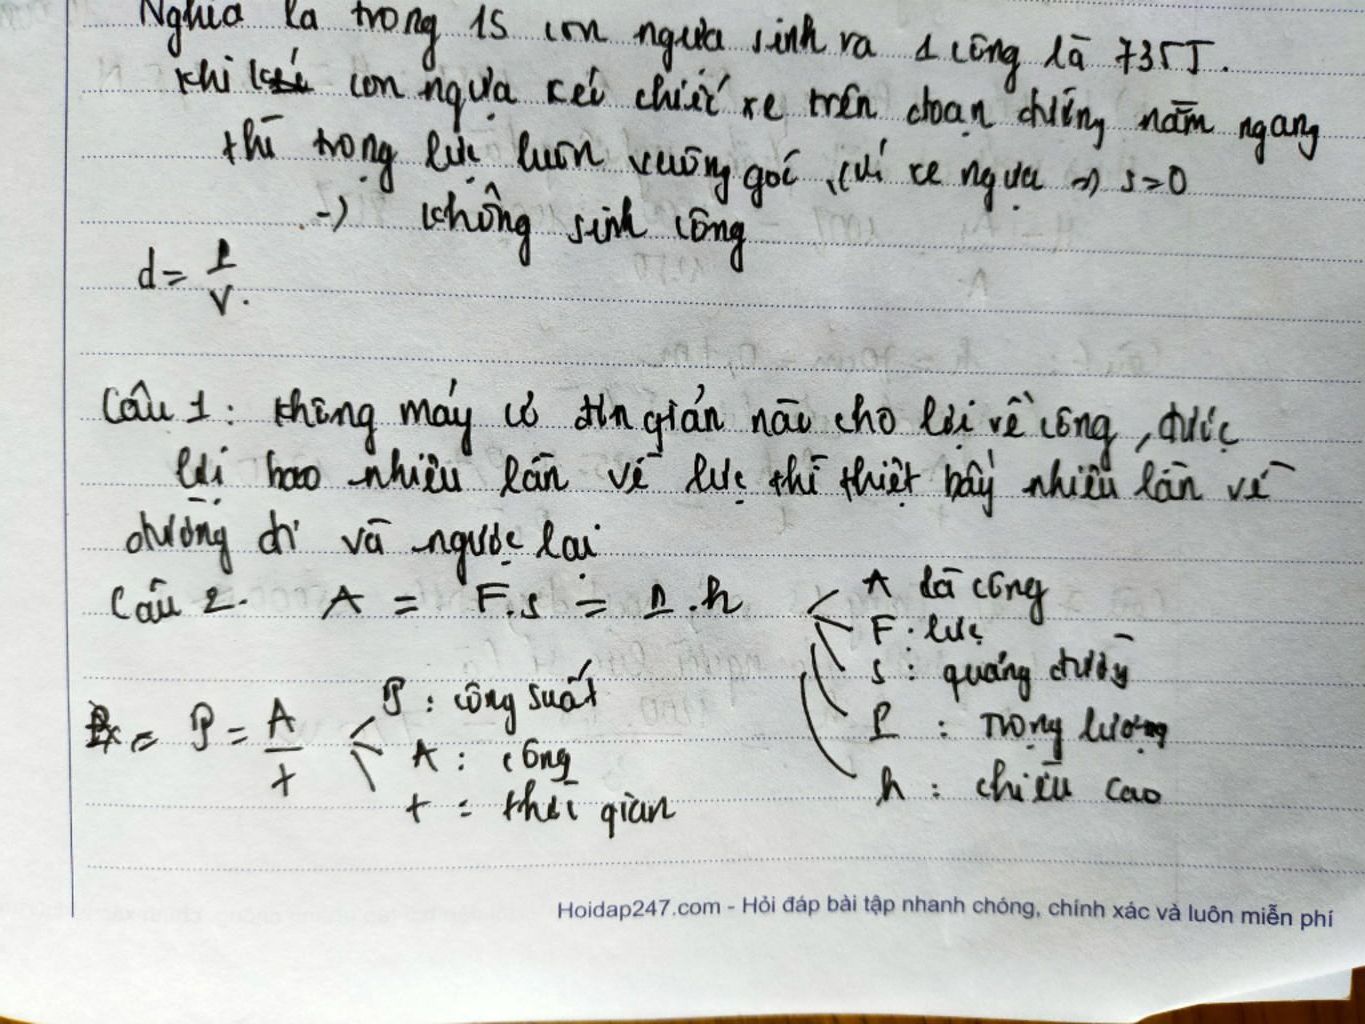 Nghĩa là trong 1s con ngựa sinh ra 1 công là 735J.
khi con ngựa kéo chiếc xe trên đoạn đường nằm ngang
thì trọng lực luôn vuông góc với xe ngựa => s=0
-> không sinh công
d = P/V.
Câu 1: không máy cơ đơn giản nào cho lợi về công, được
lợi bao nhiêu lần về lực thì thiệt bấy nhiêu lần về
đường đi và ngược lại
Câu 2. A = F.s = P.h
A là công
F: lực
s: quãng đường
P: trọng lượng
h: chiều cao
= P = A/t
P: công suất
A: công
t = thời gian
Hoidap247.com - Hỏi đáp bài tập nhanh chóng, chính xác và luôn miễn phí